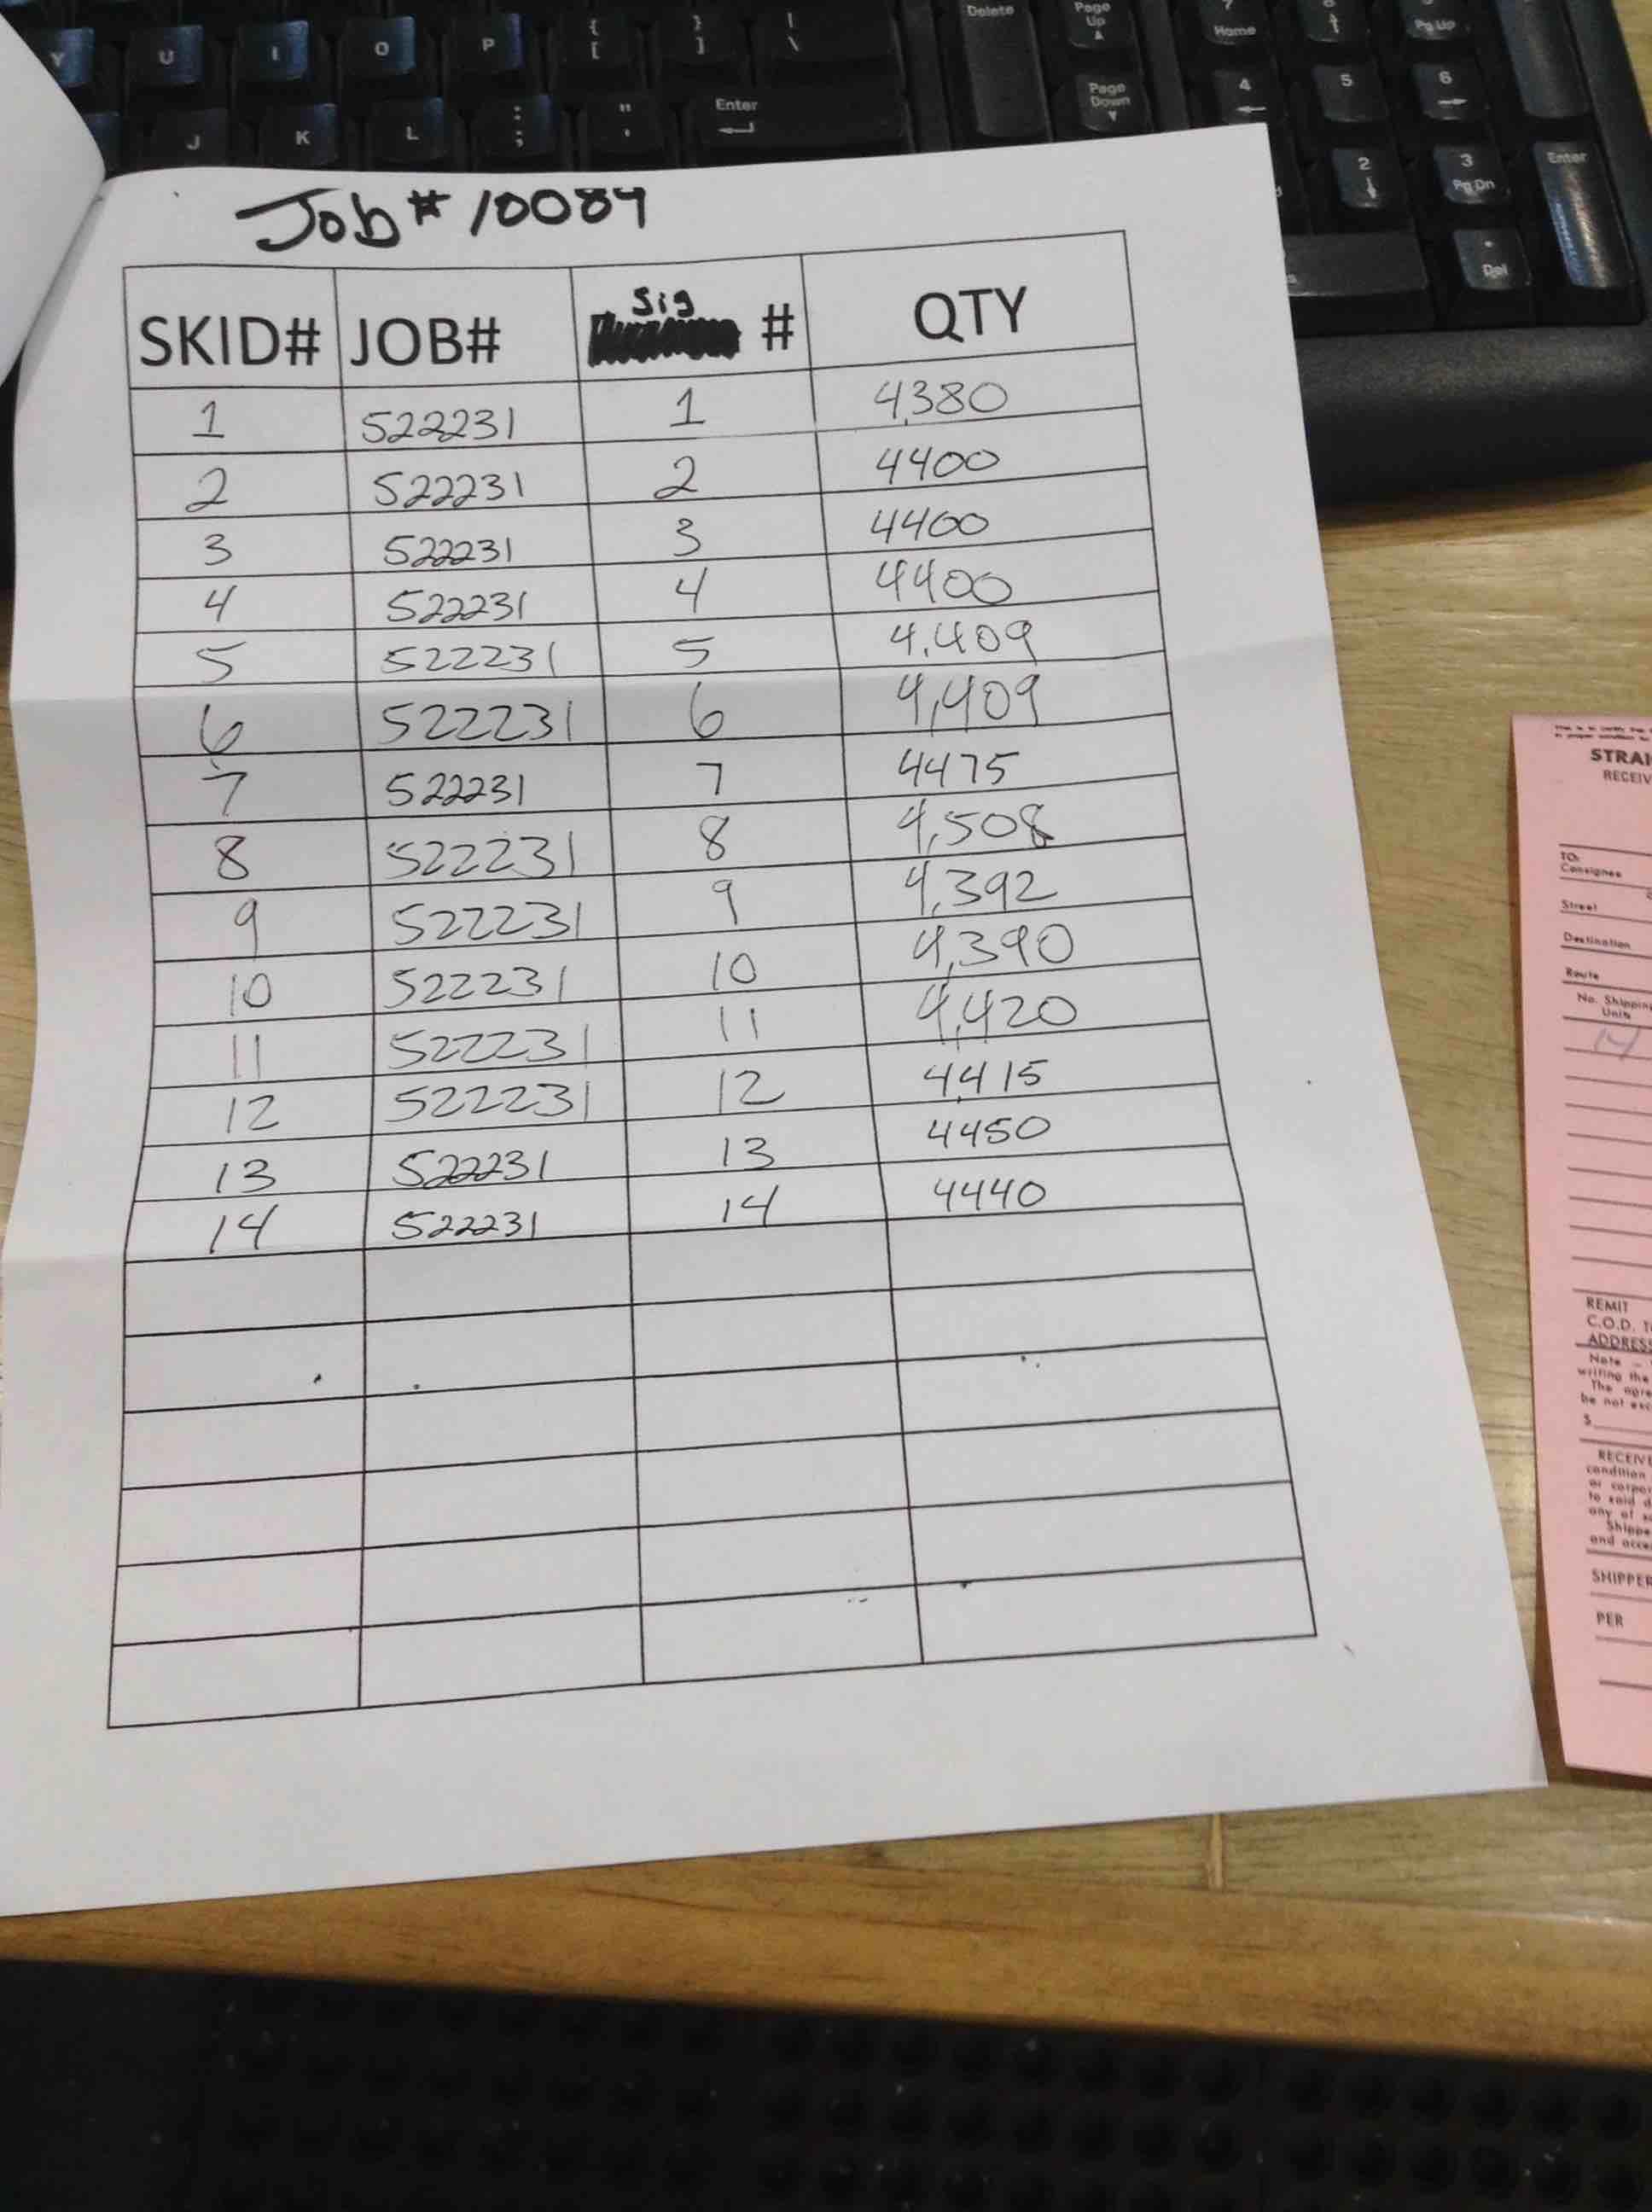 Y U I O P { [ } ] | \ Delete Page Up 7 Home 8 9 Pg Up
J K L : ; " ' Enter Page Down 4 5 6
2 3 Pg Dn Enter
. Del
Job # 10089
SKID# JOB# Sig # QTY
1 522231 1 4,380
2 522231 2 4400
3 522231 3 4400
4 522231 4 4400
5 522231 5 4,409
6 522231 6 4,409
7 522231 7 4475
8 522231 8 4,508
9 522231 9 4,392
10 522231 10 4,390
11 522231 11 4,420
12 522231 12 4,415
13 522231 13 4450
14 522231 14 4440
STRAI
RECEIV
TO:
Consignee
Street
Destination
Route
No. Shipping
Units
14
REMIT
C.O.D. T
ADDRESS
Note –
writing the
The agre
be not exc
$
RECEIVE
condition
or corpor
to said d
any of s
Shippe
and acce
SHIPPER
PER